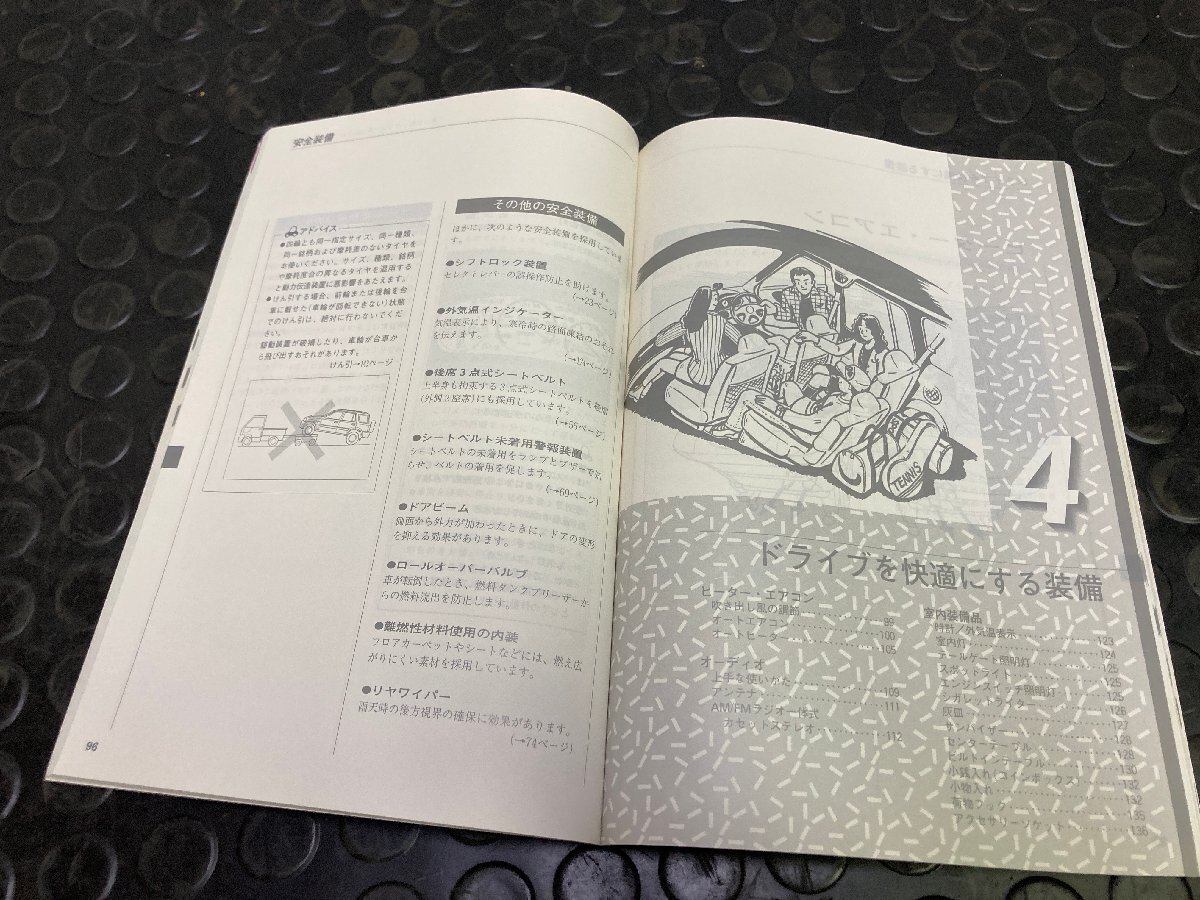 安全装備
アドバイス
●四輪とも同一指定サイズ、同一種類、
同一銘柄および磨耗差のないタイヤを
お使いください。サイズ、種類、銘柄
や磨耗度合の異なるタイヤを混用する
と動力伝達装置に悪影響をあたえます。
●けん引する場合、前輪または後輪を台
車に載せた(車輪が回転できない)状態
でのけん引は、絶対に行わないでくだ
さい。
駆動装置が破損したり、車輪が台車か
ら飛び出すおそれがあります。
けん引→
その他の安全装備
ほかに、次のような安全装備を採用していま
す。
●シフトロック装置
セレクトレバーの誤操作防止を助けます。
●外気温インジケーター
気温表示により、寒冷時の路面凍結のおそれ
を伝えます。
●後席3点式シートベルト
上半身も拘束する3点式シートベルトを後席
(外側2座席)にも採用しています。
●シートベルト未着用警報装置
シートベルトの未着用をランプとブザーで知
らせ、ベルトの着用を促します。
(→69ページ)
●ドアビーム
側面から外力が加わったときに、ドアの変形
を抑える効果があります。
●ロールオーバーバルブ
車が転倒したとき、燃料タンクブリーザーか
らの燃料流出を防止します。
●難燃性材料使用の内装
フロアカーペットやシートなどには、燃え広
がりにくい素材を採用しています。
●リヤワイパー
雨天時の後方視界の確保に効果があります。
(→74ページ)
96
TENNIS
4
ドライブを快適にする装備
ヒーター・エアコン
吹き出し風の調節 99
オートエアコン 100
オートヒーター 105
オーディオ
上手な使いかた 109
アンテナ 111
AM/FMラジオ一体式
カセットステレオ 112
室内装備品
時計/外気温表示 123
室内灯 124
テールゲート照明灯 125
スポットライト 125
エンジンスイッチ照明灯 125
シガレットライター 126
灰皿 127
サンバイザー 128
センターテーブル 128
ビルトインテーブル 130
小銭入れ(コインボックス) 132
小物入れ 132
荷物フック 135
アクセサリーソケット 136